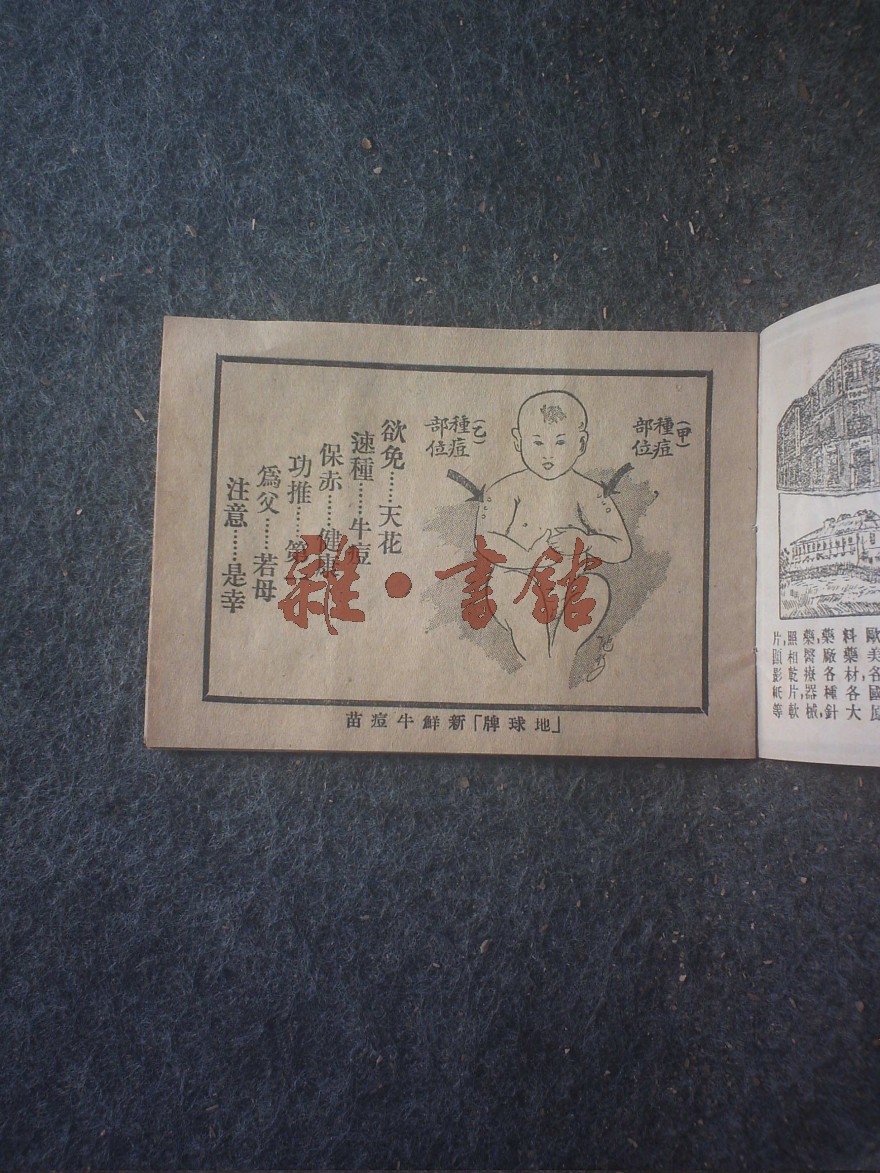 歐美各國原
料藥材,各大
藥廠各種針
藥,醫療器械,
照相乾片,軟
片,顯影紙等
(甲)種痘
部位
(乙)種痘
部位
欲免……天花
速種……牛痘
保赤……健康
功推……第一
爲父……若母
注意……是幸
「地球牌」新鮮牛痘苗
雜·書館